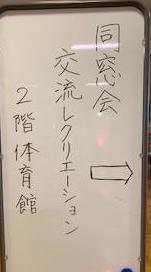 同窓会
交流レクリエーション
2階体育館